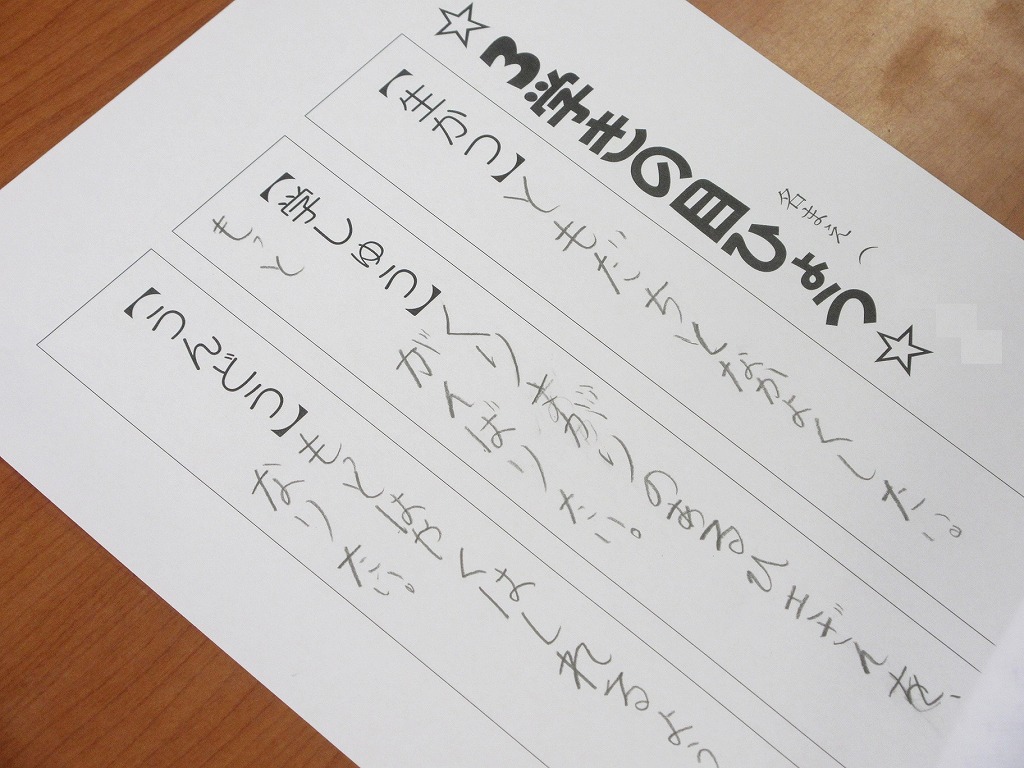 ☆3学きの目ひょう☆
名まえ（
【生かつ】ともだちとなかよくしたい。
【学しゅう】くりさがりのあるひきざんを
もっと がんばりたい。
【うんどう】もっとはやくはしれるよう
なりたい。